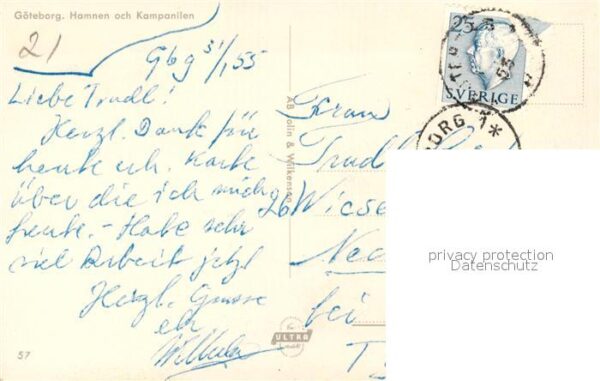 Göteborg. Hamnen och Kampanilen
21
Gbg 31/1 55
Liebe Trudl!
Herzl. Dank für
heute erh. Karte
über die ich mich
freute. - Habe sehr
viel Arbeit jetzt
Herzl. Grüsse
57
AB olin & Wilkenson
ULTRA
25
SVERIGE
BORG 1 *
Frau
Trudl
26 Wiese
Nec
bei
T
privacy protection
Datenschutz